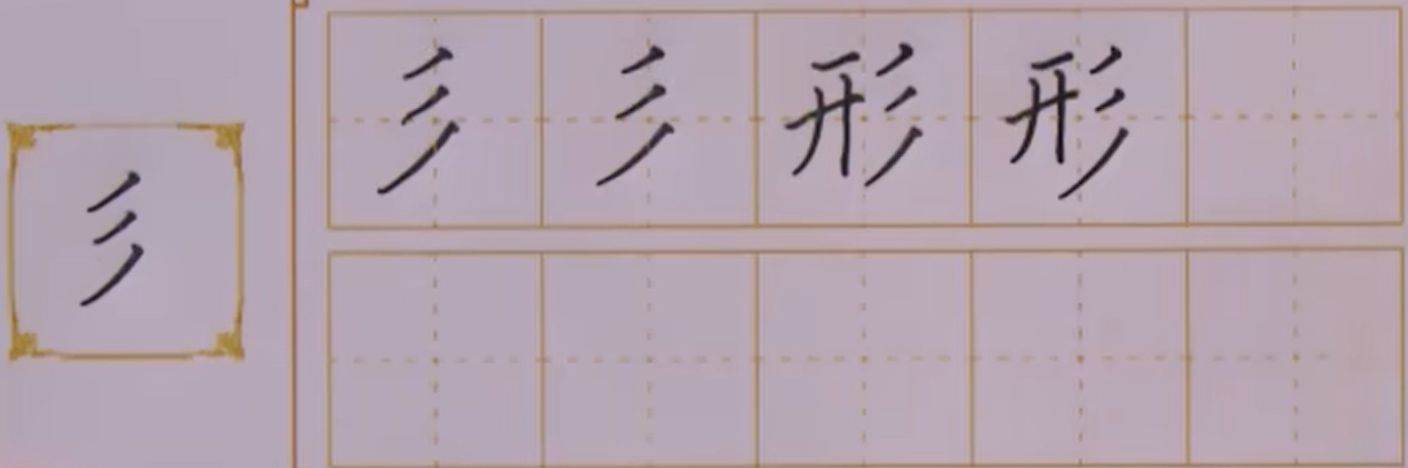 彡
彡 彡 形 形